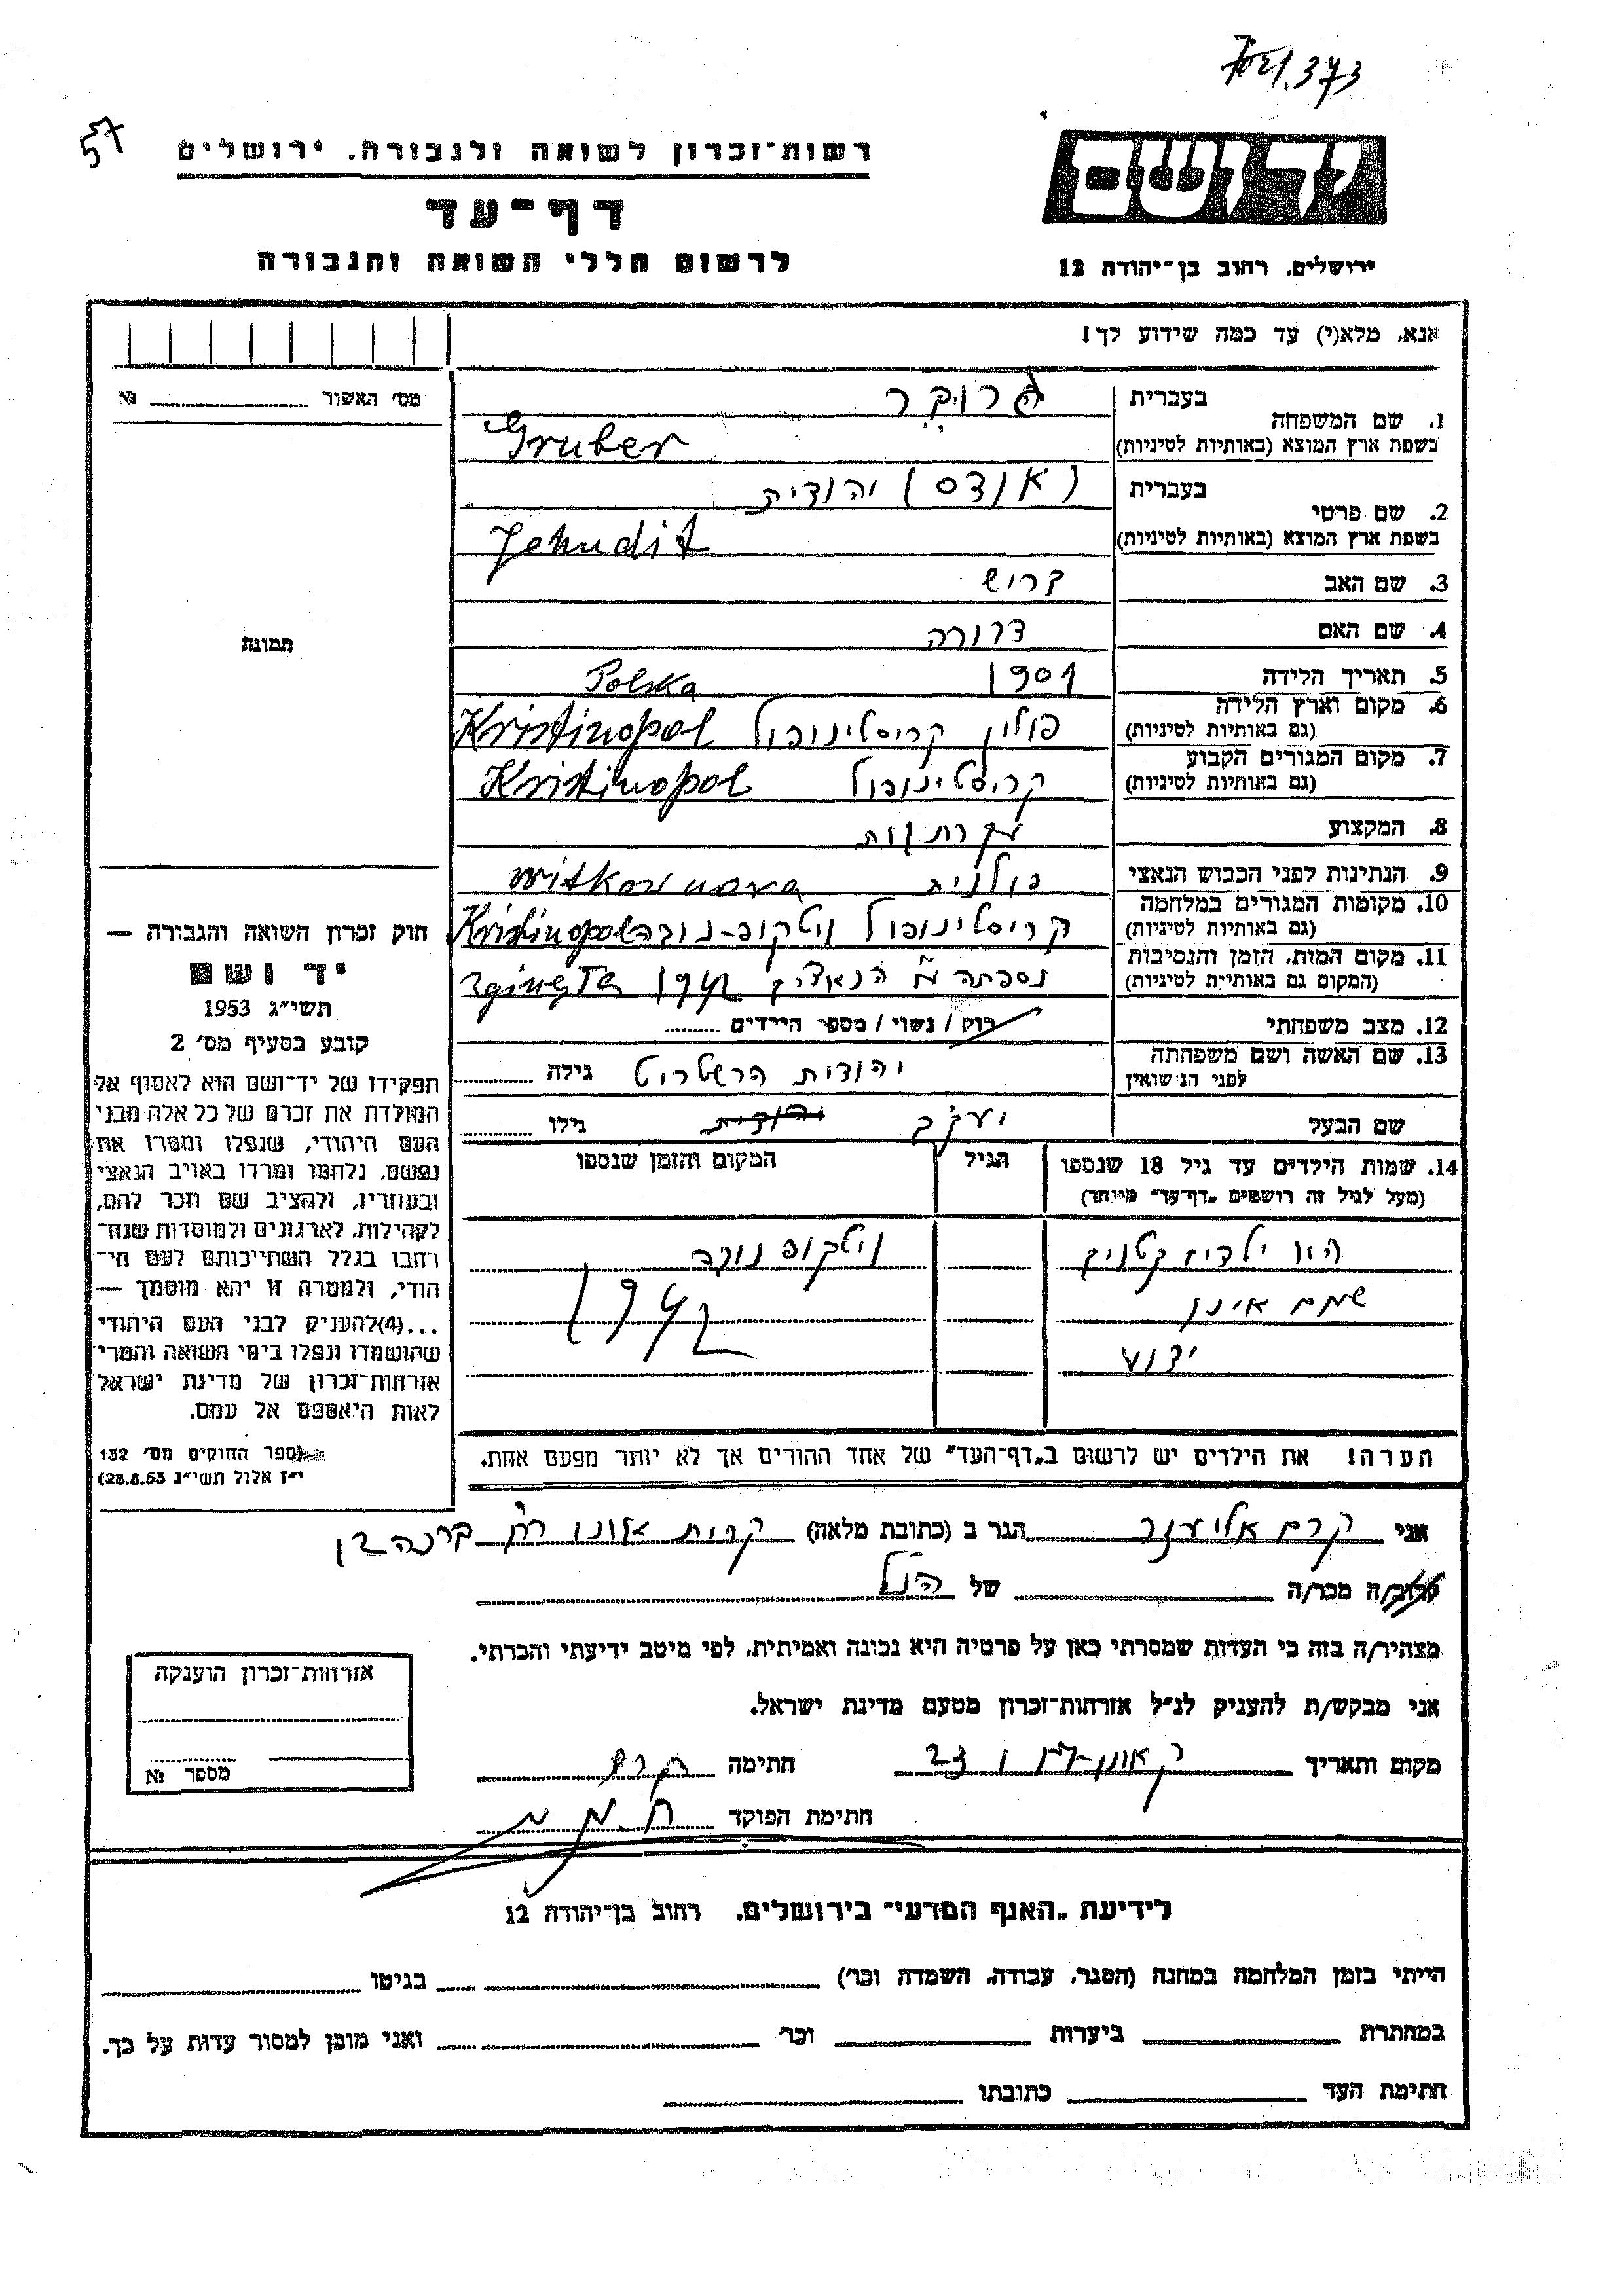 7021.373
57
רשות־זכרון לשואה ולגבורה. ירושלים
דף־עד
לרשום חללי השואה והגבורה
יד ושם
ירושלים. רחוב בן־יהודה 12
אנא. מלא(י) עד כמה שידוע לך!
מס׳ האשור № 
1. שם המשפחה
בעברית גרובר
בשפת ארץ המוצא (באותיות לטיניות) Gruber
2. שם פרטי
בעברית (אנדס) יהודית
בשפת ארץ המוצא (באותיות לטיניות) Jehudit
3. שם האב
4. שם האם
5. תאריך הלידה 1901
6. מקום וארץ הלידה
(גם באותיות לטיניות) פולין קריסטינופול Kristinopol Polska
7. מקום המגורים הקבוע
(גם באותיות לטיניות) קריסטינופול Kristinopol
8. המקצוע
9. הנתינות לפני הכבוש הנאצי פולנית
10. מקומות המגורים במלחמה
(גם באותיות לטיניות) קריסטינופול ויטקוב-נובה Kristinopol witkow nowa
11. מקום המות. הזמן והנסיבות
(המקום גם באותיית לטיניות) נספתה ע״י הנאצים 1942 zginęta
12. מצב משפחתי רוק / נשוי / מספר הילדים
13. שם האשה ושם משפחתה
לפני הנישואין יהודית גילה
שם הבעל יעקב יהודית גילו
14. שמות הילדים עד גיל 18 שנספו
(מעל לגיל זה רושמים „דף־עד״ מיוחד)
הגיל
המקום והזמן שנספו
היו ילדים קטנים ויטקוב נובה
שמם אינו 1942
ידוע
הערה! את הילדים יש לרשום ב„דף־העד״ של אחד ההורים אך לא יותר מפעם אחת.
תמונה
חוק זכרון השואה והגבורה —
יד ושם
תשי״ג 1953
קובע בסעיף מס׳ 2
תפקידו של יד־ושם הוא לאסוף אל
המולדת את זכרם של כל אלה מבני
העם היהודי, שנפלו ומסרו את
נפשם, נלחמו ומרדו באויב הנאצי
ובעוזריו, ולהציב שם וזכר להם,
לקהילות, לארגונים ולמוסדות שנח־
רחבו בגלל השתייכותם לעם הי־
הודי, ולמטרה זו יהא מוסמך —
...(4)להעניק לבני העם היהודי
שהושמדו ונפלו בימי השואה והמרי
אזרחות־זכרון של מדינת ישראל
לאות היאספם אל עמם.
(ספר החוקים מס׳ 132
י״ז אלול תשי״ג 28.8.53)
אני קרם אליעזר הגר ב (כתובת מלאה) קרית אונו
קרוב/ה מכר/ה של הנ״ל
מצהיר/ה בזה כי העדות שמסרתי כאן על פרטיה היא נכונה ואמיתית, לפי מיטב ידיעתי והכרתי.
אני מבקש/ת להעניק לנ״ל אזרחות־זכרון מטעם מדינת ישראל.
מקום ותאריך חתימה קרם
חתימת הפוקד
אזרחות־זכרון הוענקה
מספר №
לידיעת „האגף המדעי״ בירושלים. רחוב בן־יהודה 12
הייתי בזמן המלחמה במחנה (הסגר, עבודה, השמדה וכו׳) בגיטו
במחתרת ביערות וכו׳ ואני מוכן למסור עדות על כך.
חתימת העד כתובתו